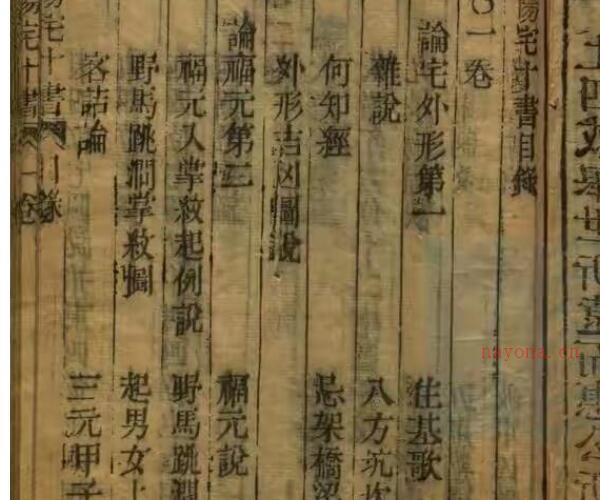 陽宅十書目錄
○一卷
論宅外形第一 住基歌
雜說 八方坑坎
何知經 忌架橋
外形吉凶圖說
論福元第二 福元說
福元入掌紋起例說 野馬跳澗
野馬跳澗掌紋圖 起男女上
論 三元甲子
陽宅十書 目錄
陽宅十書 一卷
nayona.cn